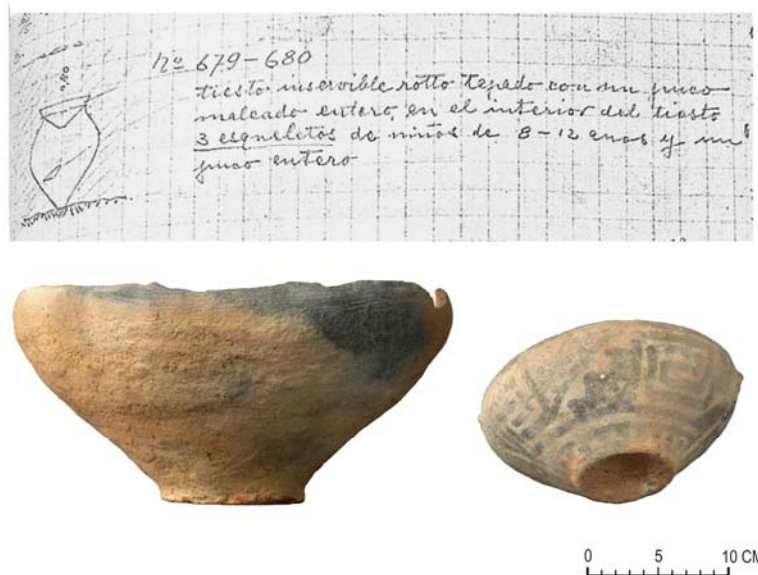 nº 679-680
tiesto inservible rotto tapado con un puco
maleado entero, en el interior del tiesto
3 esqueletos de niños de 8-12 anos y un
puco entero
0,40
0 5 10 CM